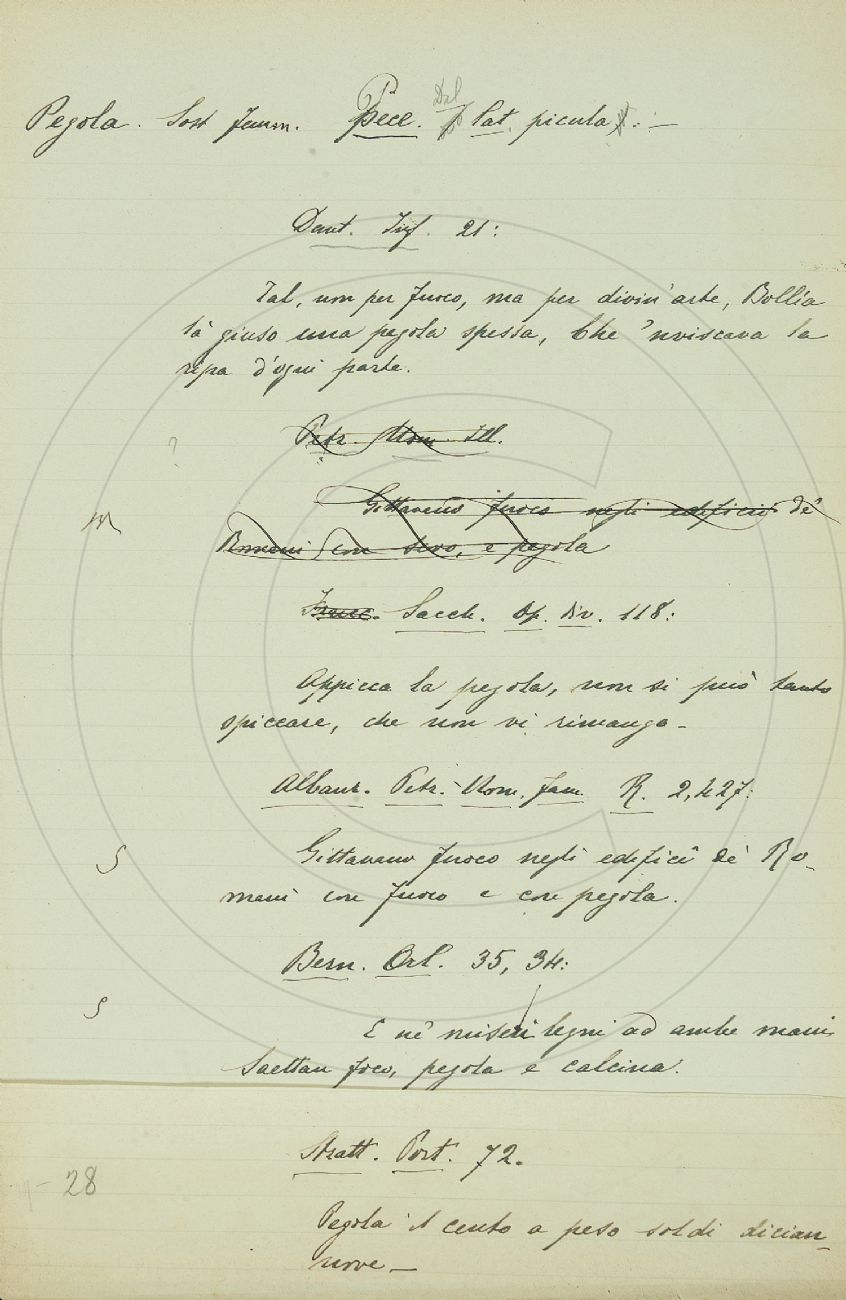 Pegola. Sost femm. Pece. Dal lat. picula. —
Dant. Inf. 21:
Tal, non per fuoco, ma per divin'arte, Bollía
là giuso una pegola spessa, Che 'nviscava la
ripa d'ogni parte.
Petr. Uom. Ill.
?
Gittaveno fuoco negli edificii de'
M
Romani con sevo, e pegola
Franc. Sacch. Op. Div. 118:
Appicca la pegola, non si può tanto
spiccare, che non vi rimanga -
Albanz. Petr. Uom. fam. R. 2,427:
S
Gittavano fuoco negli edificî de' Ro-
mani con fuoco e con pegola.
Bern. Orl. 35, 34:
S
E ne' miseri legni ad ambe mani
Saettan foco, pegola e calcina.
Stratt. Port. 72.
28
Pegola il cento a peso soldi dician-
nove —